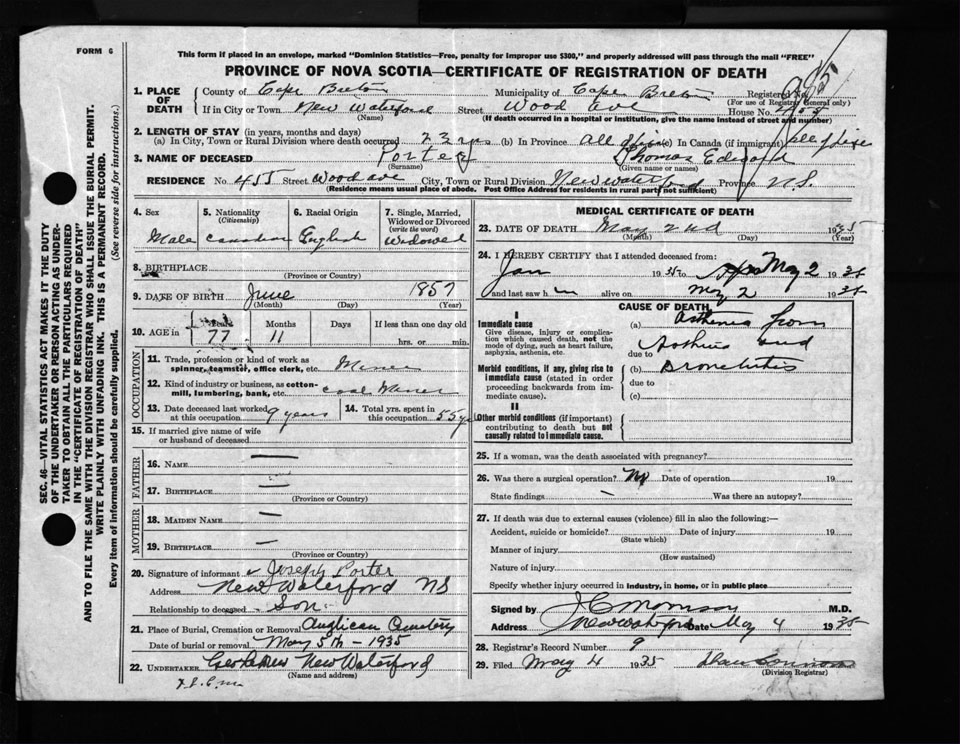 FORM 6
This form if placed in an envelope, marked "Dominion Statistics—Free, penalty for improper use $300," and properly addressed will pass through the mail "FREE"
PROVINCE OF NOVA SCOTIA—CERTIFICATE OF REGISTRATION OF DEATH
1. PLACE OF DEATH
County of Cape Breton Municipality of Cape Breton Registered No.
(For use of Registrar General only)
If in City or Town New Waterford Street Wood Ave House No.
(Name) (If death occurred in a hospital or institution, give the name instead of street and number)
2. LENGTH OF STAY (in years, months and days)
(a) In City, Town or Rural Division where death occurred 23 yrs (b) In Province All of life (c) In Canada (if immigrant) all of life
3. NAME OF DECEASED Porter Thomas Edward
(Surname) (Given name or names)
RESIDENCE No. 455 Street Wood ave City, Town or Rural Division New Waterford Province N.S.
(Residence means usual place of abode. Post Office Address for residents in rural parts not sufficient)
4. Sex
Male
5. Nationality
(Citizenship)
Canadian
6. Racial Origin
English
7. Single, Married, Widowed or Divorced
(write the word)
Widowed
8. BIRTHPLACE
(Province or Country)
9. DATE OF BIRTH June 1857
(Month) (Day) (Year)
10. AGE in Years Months Days If less than one day
77 11 hrs. or min.
OCCUPATION
11. Trade, profession or kind of work as spinner, teamster, office clerk, etc. Miner
12. Kind of industry or business, as cotton-mill, lumbering, bank, etc. coal Miner
13. Date deceased last worked at this occupation 9 years
14. Total yrs. spent in this occupation 55 yrs
15. If married give name of wife or husband of deceased
FATHER
16. NAME —
17. BIRTHPLACE —
(Province or Country)
MOTHER
18. MAIDEN NAME —
19. BIRTHPLACE —
(Province or Country)
20. Signature of informant Joseph Porter
Address New Waterford NS
Relationship to deceased Son
21. Place of Burial, Cremation or Removal Anglican Cemetery
Date of burial or removal May 5th - 1935
22. UNDERTAKER New Waterford
(Name and address)
MEDICAL CERTIFICATE OF DEATH
23. DATE OF DEATH May 2nd 1935
(Month) (Day) (Year)
24. I HEREBY CERTIFY that I attended deceased from:
Jan 1935 to May 2 1935
and last saw him alive on May 2 1935
CAUSE OF DEATH
I
Immediate cause
Give disease, injury or complication which caused death, not the mode of dying, such as heart failure, asphyxia, asthenia, etc.
Morbid conditions, if any, giving rise to immediate cause (stated in order proceeding backwards from immediate cause).
II
Other morbid conditions (if important) contributing to death but not causally related to immediate cause.
(a) Asthenia from
due to Asthma and
(b) Bronchitis
due to
(c)
25. If a woman, was the death associated with pregnancy?
26. Was there a surgical operation? No Date of operation 19
State findings — Was there an autopsy?
27. If death was due to external causes (violence) fill in also the following:—
Accident, suicide or homicide? Date of injury 19
(State which)
Manner of injury
(How sustained)
Nature of injury
Specify whether injury occurred in industry, in home, or in public place
Signed by J C Morrison M.D.
Address New Waterford Date May 4 1935
28. Registrar's Record Number 9
29. Filed May 4 1935
(Division Registrar)
SEC. 46—VITAL STATISTICS ACT MAKES IT THE DUTY
OF THE UNDERTAKER OR PERSON ACTING AS UNDERTAKER TO OBTAIN ALL THE PARTICULARS REQUIRED
IN THE "CERTIFICATE OF REGISTRATION OF DEATH"
AND TO FILE THE SAME WITH THE DIVISION REGISTRAR WHO SHALL ISSUE THE BURIAL PERMIT.
WRITE PLAINLY WITH UNFADING INK. THIS IS A PERMANENT RECORD.
Every item of information should be carefully supplied. (See reverse side for instructions.)